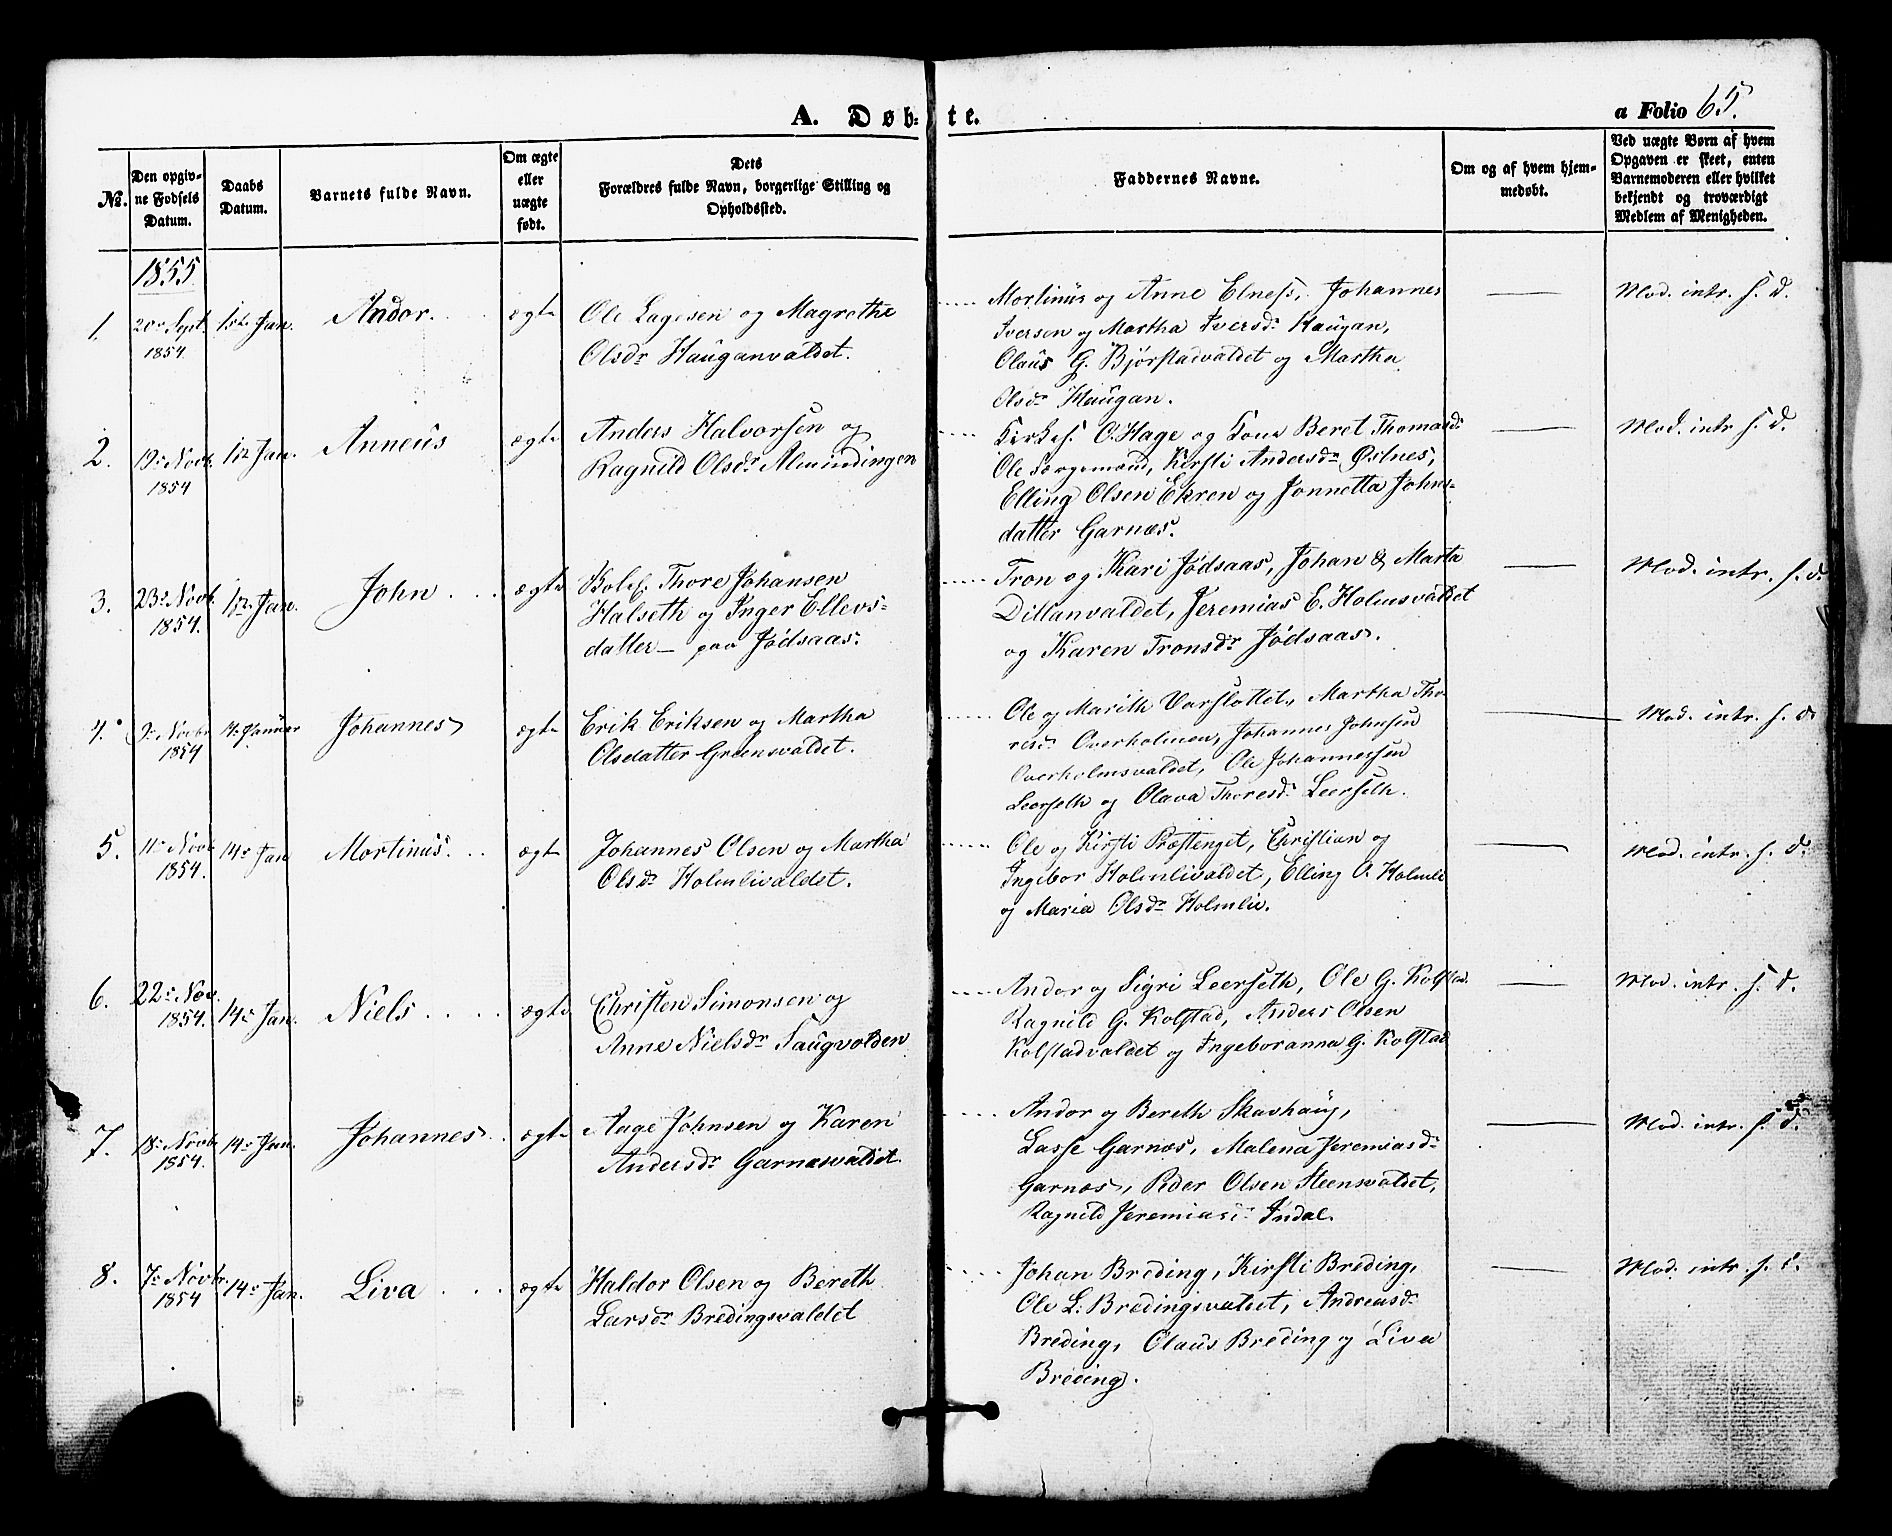 A. Døb-te.
a Folio 65.
No.
Den opgivne Fødsels Datum.
Daabs Datum.
Barnets fulde Navn.
Om ægte eller uægte født.
Dets Forældres fulde Navn, borgerlige Stilling og Opholdssted.
Faddernes Navne.
Om og af hvem hjemmedøbt.
Ved uægte Børn af hvem Opgaven er skeet, enten Barnemoderen eller hvilket bekjendt og troværdigt Medlem af Menigheden.
1855
1.
20de Sept.
1854
1ste Jan.
Andor.
ægte
Ole Lagesen og Magrethe
Olsdr Hauganvaldet.
Mortinus og Anne Elness, Johannes
Iversen og Martha Iversdr Haugan,
Olaus G. Bjørstadvaldet og Martha
Olsdr Haugan.
Mod. intr. s. d.
2.
19de Novb.
1854
1ste Jan.
Anneus
ægte
Anders Halvorsen og
Ragnild Olsdr Almindingen
Kirkes. O. Hage og Kone Beret Thomasdr
Ole Borgemand, Kirsti Andersdr Østnes,
Elling Olsen Ekren og Jonnetta Johns-
datter Garnæs.
Mod. intr. s. d.
3.
23de Novb.
1854.
1ste Jan.
John
ægte
Thore Johansen
Halseth og Inger Ellevs-
datter – paa Jødsaas.
Tron og Kari Jødsaas, Johan & Marta
Dillanvaldet, Jeremias E. Holmsvaldet
og Karen Tronsdr Jødsaas.
Mod. intr. s. d.
4.
9de Novbr
1854
14de Januar
Johannes
ægte
Erik Eriksen og Martha
Olsdatter Greensvaldet.
Ole og Marith Varslottet, Martha Tho-
resdr Overholmen, Johannes Johnsen
Overholmsvaldet, Ole Johannessen
Leerseth og Olava Thoresdr Leerseth.
Mod. intr. s. d.
5.
11te Novb.
1854.
14de Jan
Mortinus.
ægte
Johannes Olsen og Martha
Olsdr Holmlivaldet.
Ole og Kirsti Præstenget, Christian og
Ingebor Holmlivaldet, Elling O. Holmli
og Maria Olsdr Holmlie.
Mod. intr. s. d.
6.
22de Nov.
1854.
14de Jan.
Niels
ægte
Christen Simonsen og
Anne Nielsdr Haugvolden
Andor og Sigri Leerseth, Ole G. Kolstad.
Ragnild G. Kolstad, Anders Olsen
Kolstadvaldet og Ingeboranna G. Kolstad
Mod. intr. s. d.
7.
18de Novb.
1854.
14de Jan.
Johannes
ægte
Aage Johnsen og Karen
Andersdr Garnæsvaldet.
Andor og Bereth Skavhaug,
Lasse Garnæs, Malena Jeremiasdr
Garnæs, Peder Olsen Steensvaldet,
Ragnild Jeremiasdr Indal.
Mod. intr. s. d.
8.
7de Novbr.
1854
14de Jan.
Liva
ægte
Haldor Olsen og Bereth
Larsdr Bredingsvaldet
Johan Breding, Kirsti Breding,
Ole L. Bredingsvaldet, Andreasdr
Breding, Olaus Breding og Liva
Breding.
Mod. intr. s. d.